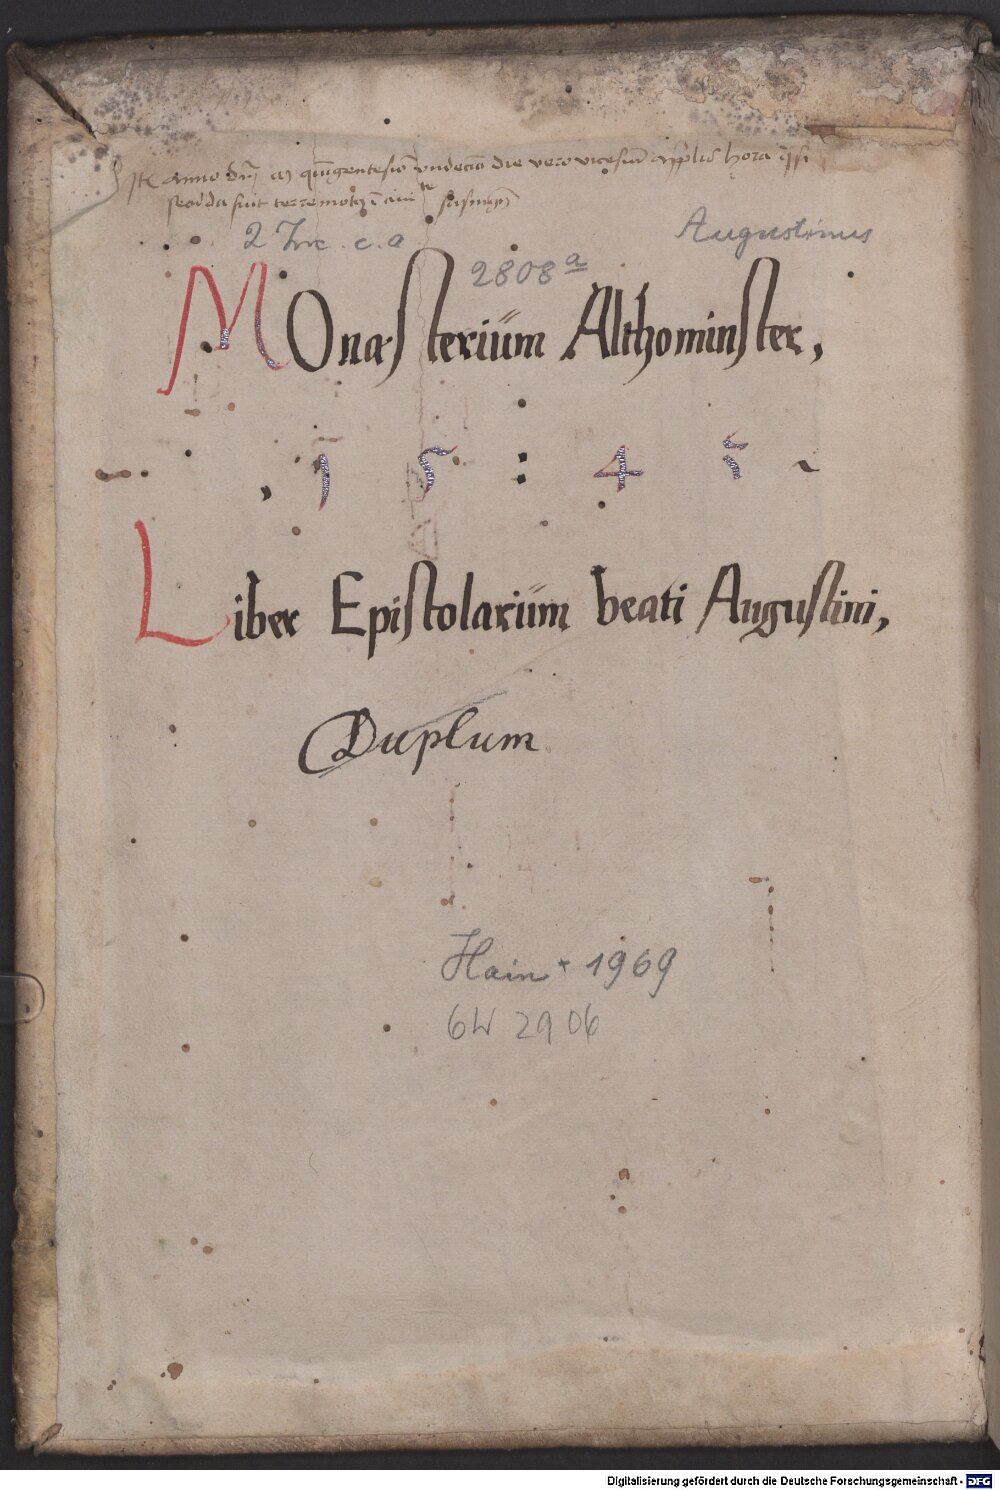 anno quingentesio undecio die vero vicesima Aprilis hora
fuit terremotus
Augustinus
2 Inc. c. a
2808 a
MOnasterium Althominster,
1 5 : 4 5
Liber Epistolarium beati Augustini,
Duplum
Hain + 1969
GW 2906
Digitalisierung gefördert durch die Deutsche Forschungsgemeinschaft - DFG